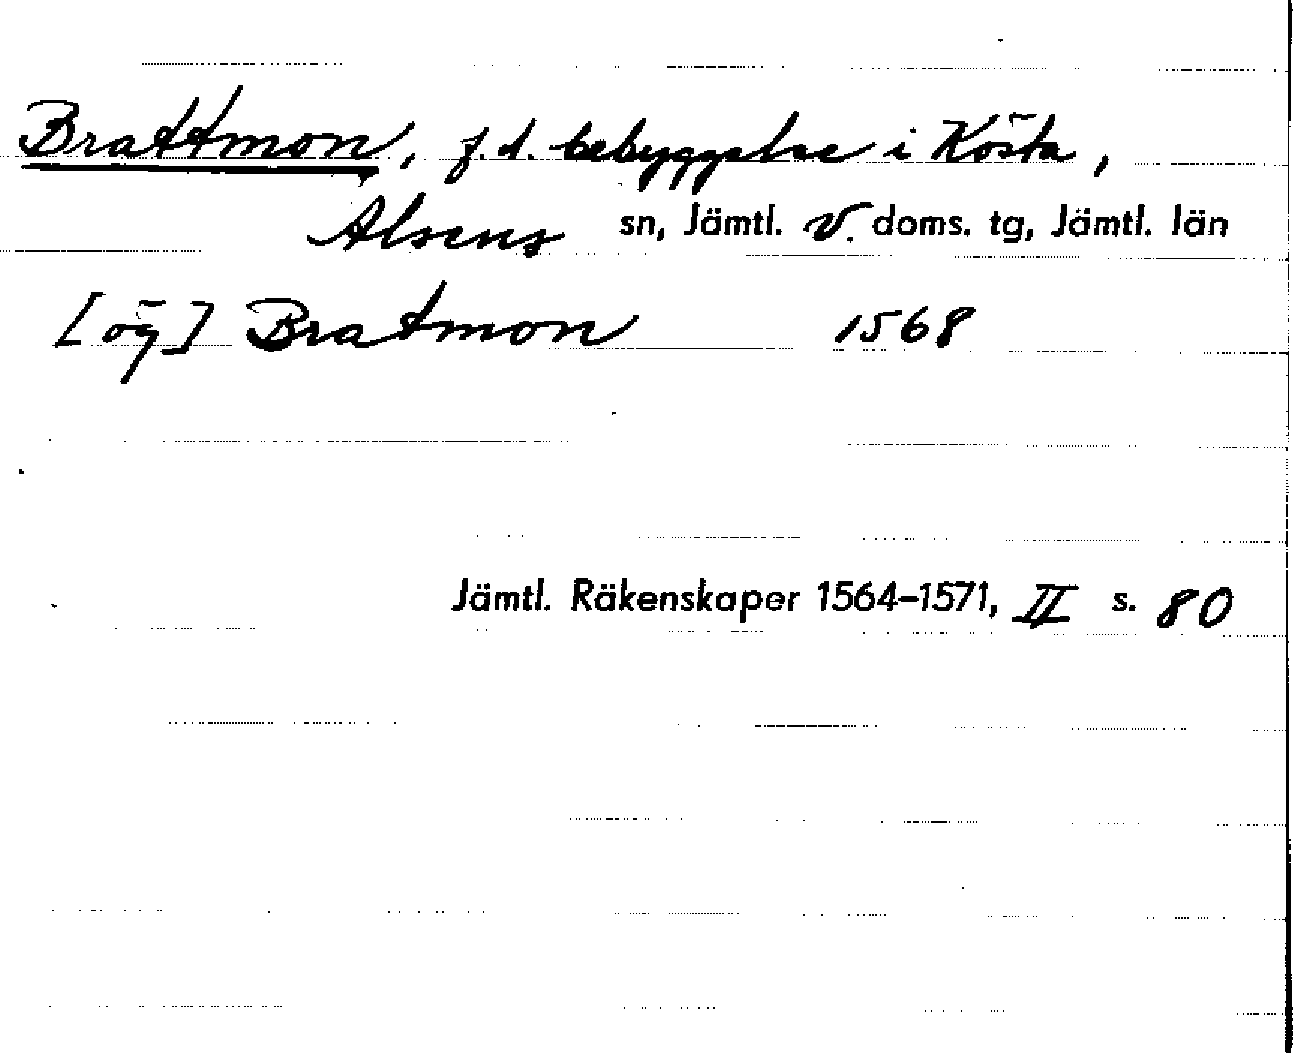 Brattmon, f.d. bebyggelse i Kösta,
Alsens sn, Jämtl. v. doms. tg, Jämtl. län
[ög] Bratmon 1568
Jämtl. Räkenskaper 1564-1571, II s. 80